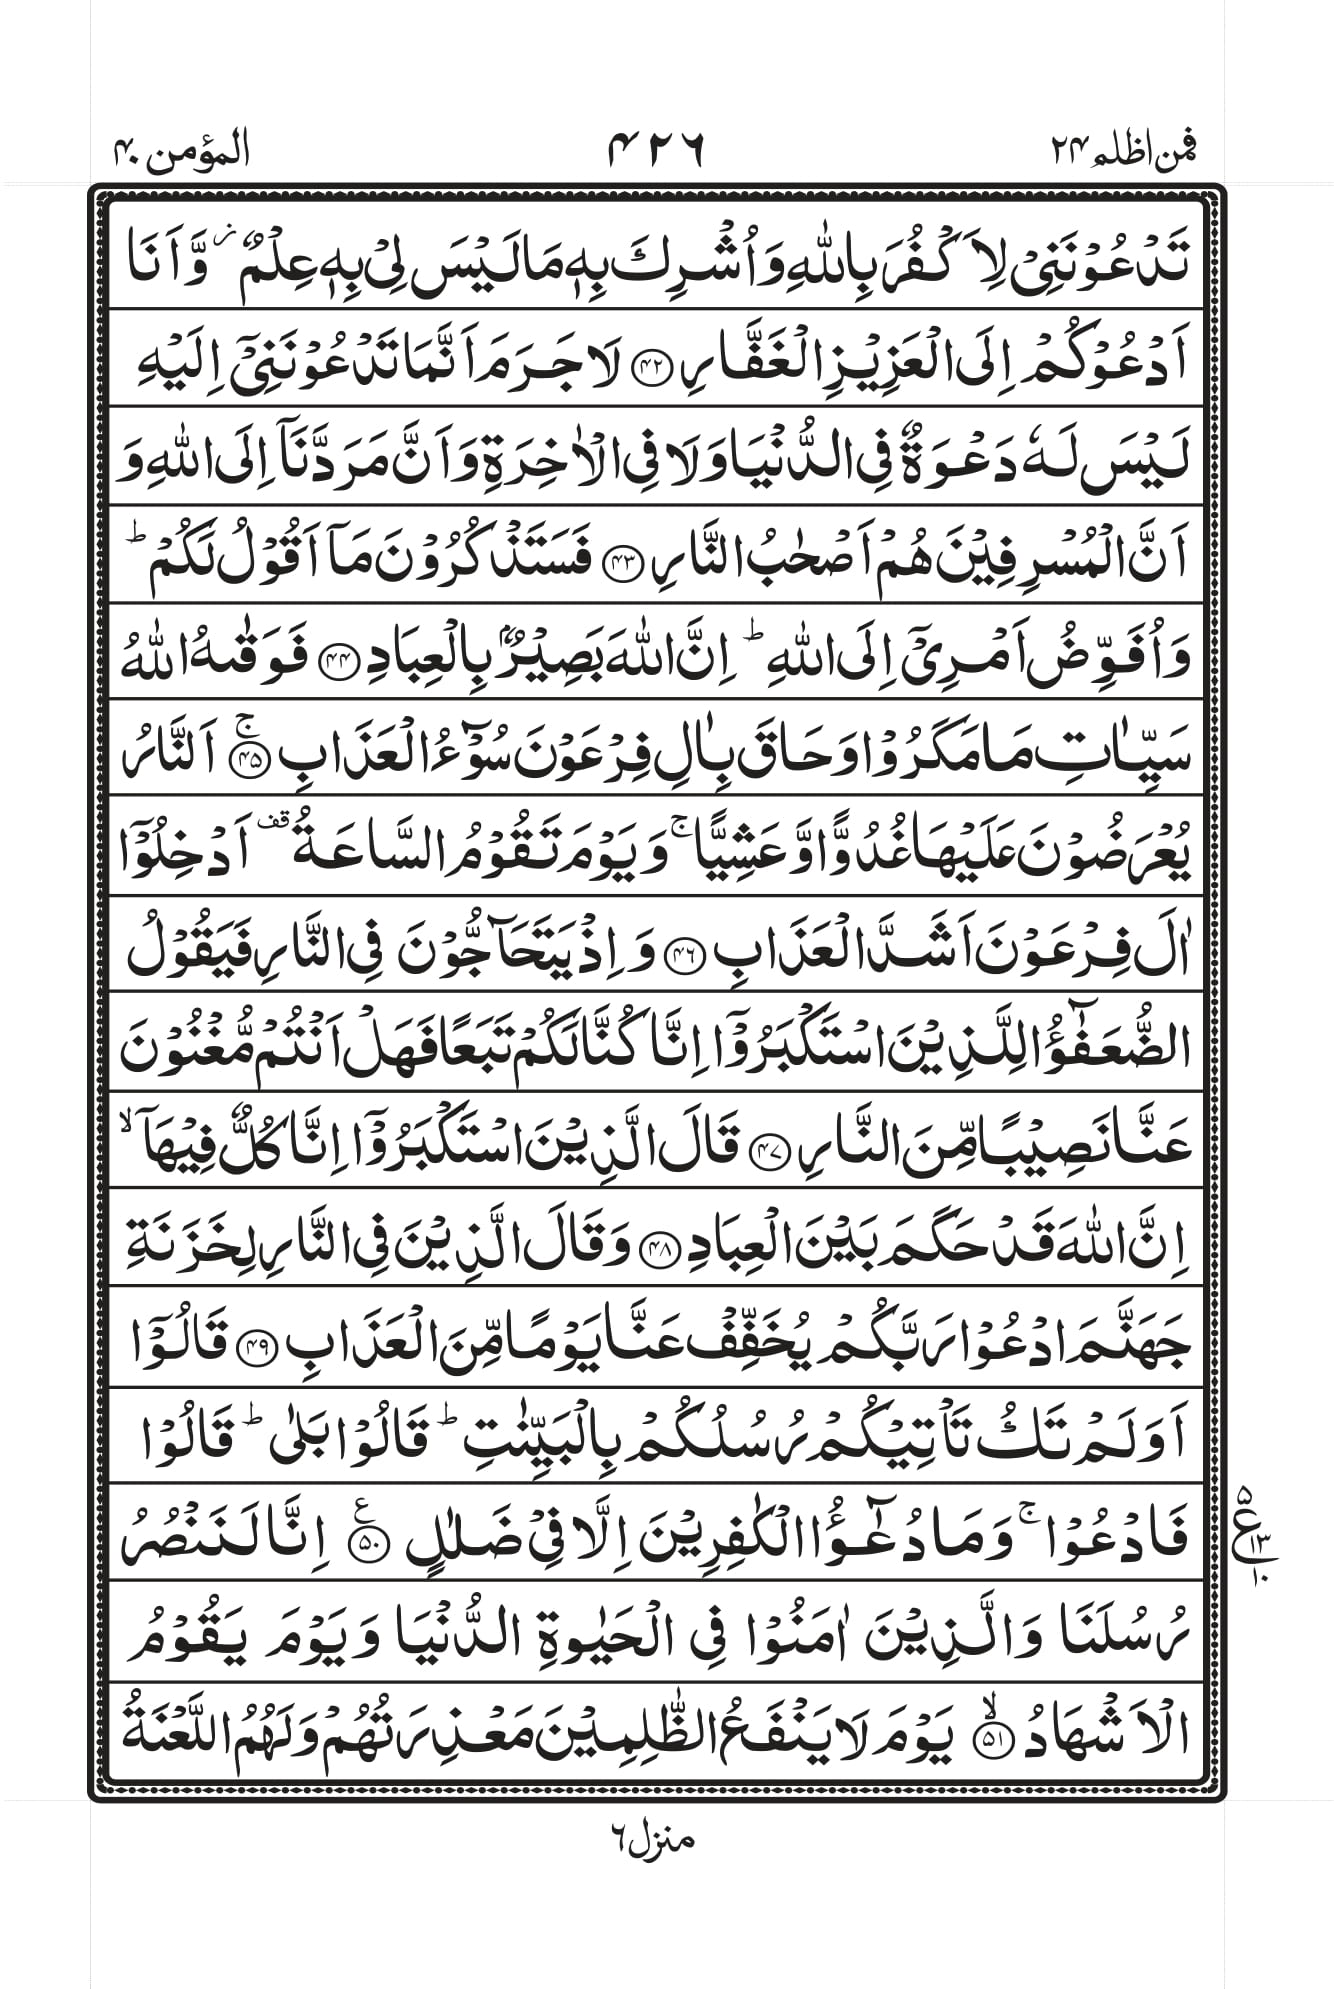 فمن اظلم ٢٤
٤٢٦
المؤمن ٤٠
تَدْعُوْنَنِيْ لِاَكْفُرَ بِاللّٰهِ وَاُشْرِكَ بِهٖ مَا لَيْسَ لِيْ بِهٖ عِلْمٌ ز وَّاَنَا
اَدْعُوْكُمْ اِلَى الْعَزِيْزِ الْغَفَّارِ ﴿٤٢﴾ لَا جَرَمَ اَنَّمَا تَدْعُوْنَنِيْٓ اِلَيْهِ
لَيْسَ لَهٗ دَعْوَةٌ فِي الدُّنْيَا وَلَا فِي الْاٰخِرَةِ وَاَنَّ مَرَدَّنَآ اِلَى اللّٰهِ وَ
اَنَّ الْمُسْرِفِيْنَ هُمْ اَصْحٰبُ النَّارِ ﴿٤٣﴾ فَسَتَذْكُرُوْنَ مَآ اَقُوْلُ لَكُمْ ؕ
وَاُفَوِّضُ اَمْرِيْٓ اِلَى اللّٰهِ ؕ اِنَّ اللّٰهَ بَصِيْرٌۢ بِالْعِبَادِ ﴿٤٤﴾ فَوَقٰىهُ اللّٰهُ
سَيِّاٰتِ مَا مَكَرُوْا وَحَاقَ بِاٰلِ فِرْعَوْنَ سُوْٓءُ الْعَذَابِ ﴿٤٥﴾ۚ اَلنَّارُ
يُعْرَضُوْنَ عَلَيْهَا غُدُوًّا وَّعَشِيًّا ۚ وَيَوْمَ تَقُوْمُ السَّاعَةُ قف اَدْخِلُوْٓا
اٰلَ فِرْعَوْنَ اَشَدَّ الْعَذَابِ ﴿٤٦﴾ وَاِذْ يَتَحَآجُّوْنَ فِي النَّارِ فَيَقُوْلُ
الضُّعَفٰٓؤُا لِلَّذِيْنَ اسْتَكْبَرُوْٓا اِنَّا كُنَّا لَكُمْ تَبَعًا فَهَلْ اَنْتُمْ مُّغْنُوْنَ
عَنَّا نَصِيْبًا مِّنَ النَّارِ ﴿٤٧﴾ قَالَ الَّذِيْنَ اسْتَكْبَرُوْٓا اِنَّا كُلٌّ فِيْهَآ ۙ
اِنَّ اللّٰهَ قَدْ حَكَمَ بَيْنَ الْعِبَادِ ﴿٤٨﴾ وَقَالَ الَّذِيْنَ فِي النَّارِ لِخَزَنَةِ
جَهَنَّمَ ادْعُوْا رَبَّكُمْ يُخَفِّفْ عَنَّا يَوْمًا مِّنَ الْعَذَابِ ﴿٤٩﴾ قَالُوْٓا
اَوَلَمْ تَكُ تَاْتِيْكُمْ رُسُلُكُمْ بِالْبَيِّنٰتِ ؕ قَالُوْا بَلٰى ؕ قَالُوْا
فَادْعُوْا ۚ وَمَا دُعٰٓؤُا الْكٰفِرِيْنَ اِلَّا فِيْ ضَلٰلٍ ﴿٥٠﴾ ع اِنَّا لَنَنْصُرُ
٥ ع ١٣ ١٠
رُسُلَنَا وَالَّذِيْنَ اٰمَنُوْا فِي الْحَيٰوةِ الدُّنْيَا وَيَوْمَ يَقُوْمُ
الْاَشْهَادُ ﴿٥١﴾ۙ يَوْمَ لَا يَنْفَعُ الظّٰلِمِيْنَ مَعْذِرَتُهُمْ وَلَهُمُ اللَّعْنَةُ
منزل ٦